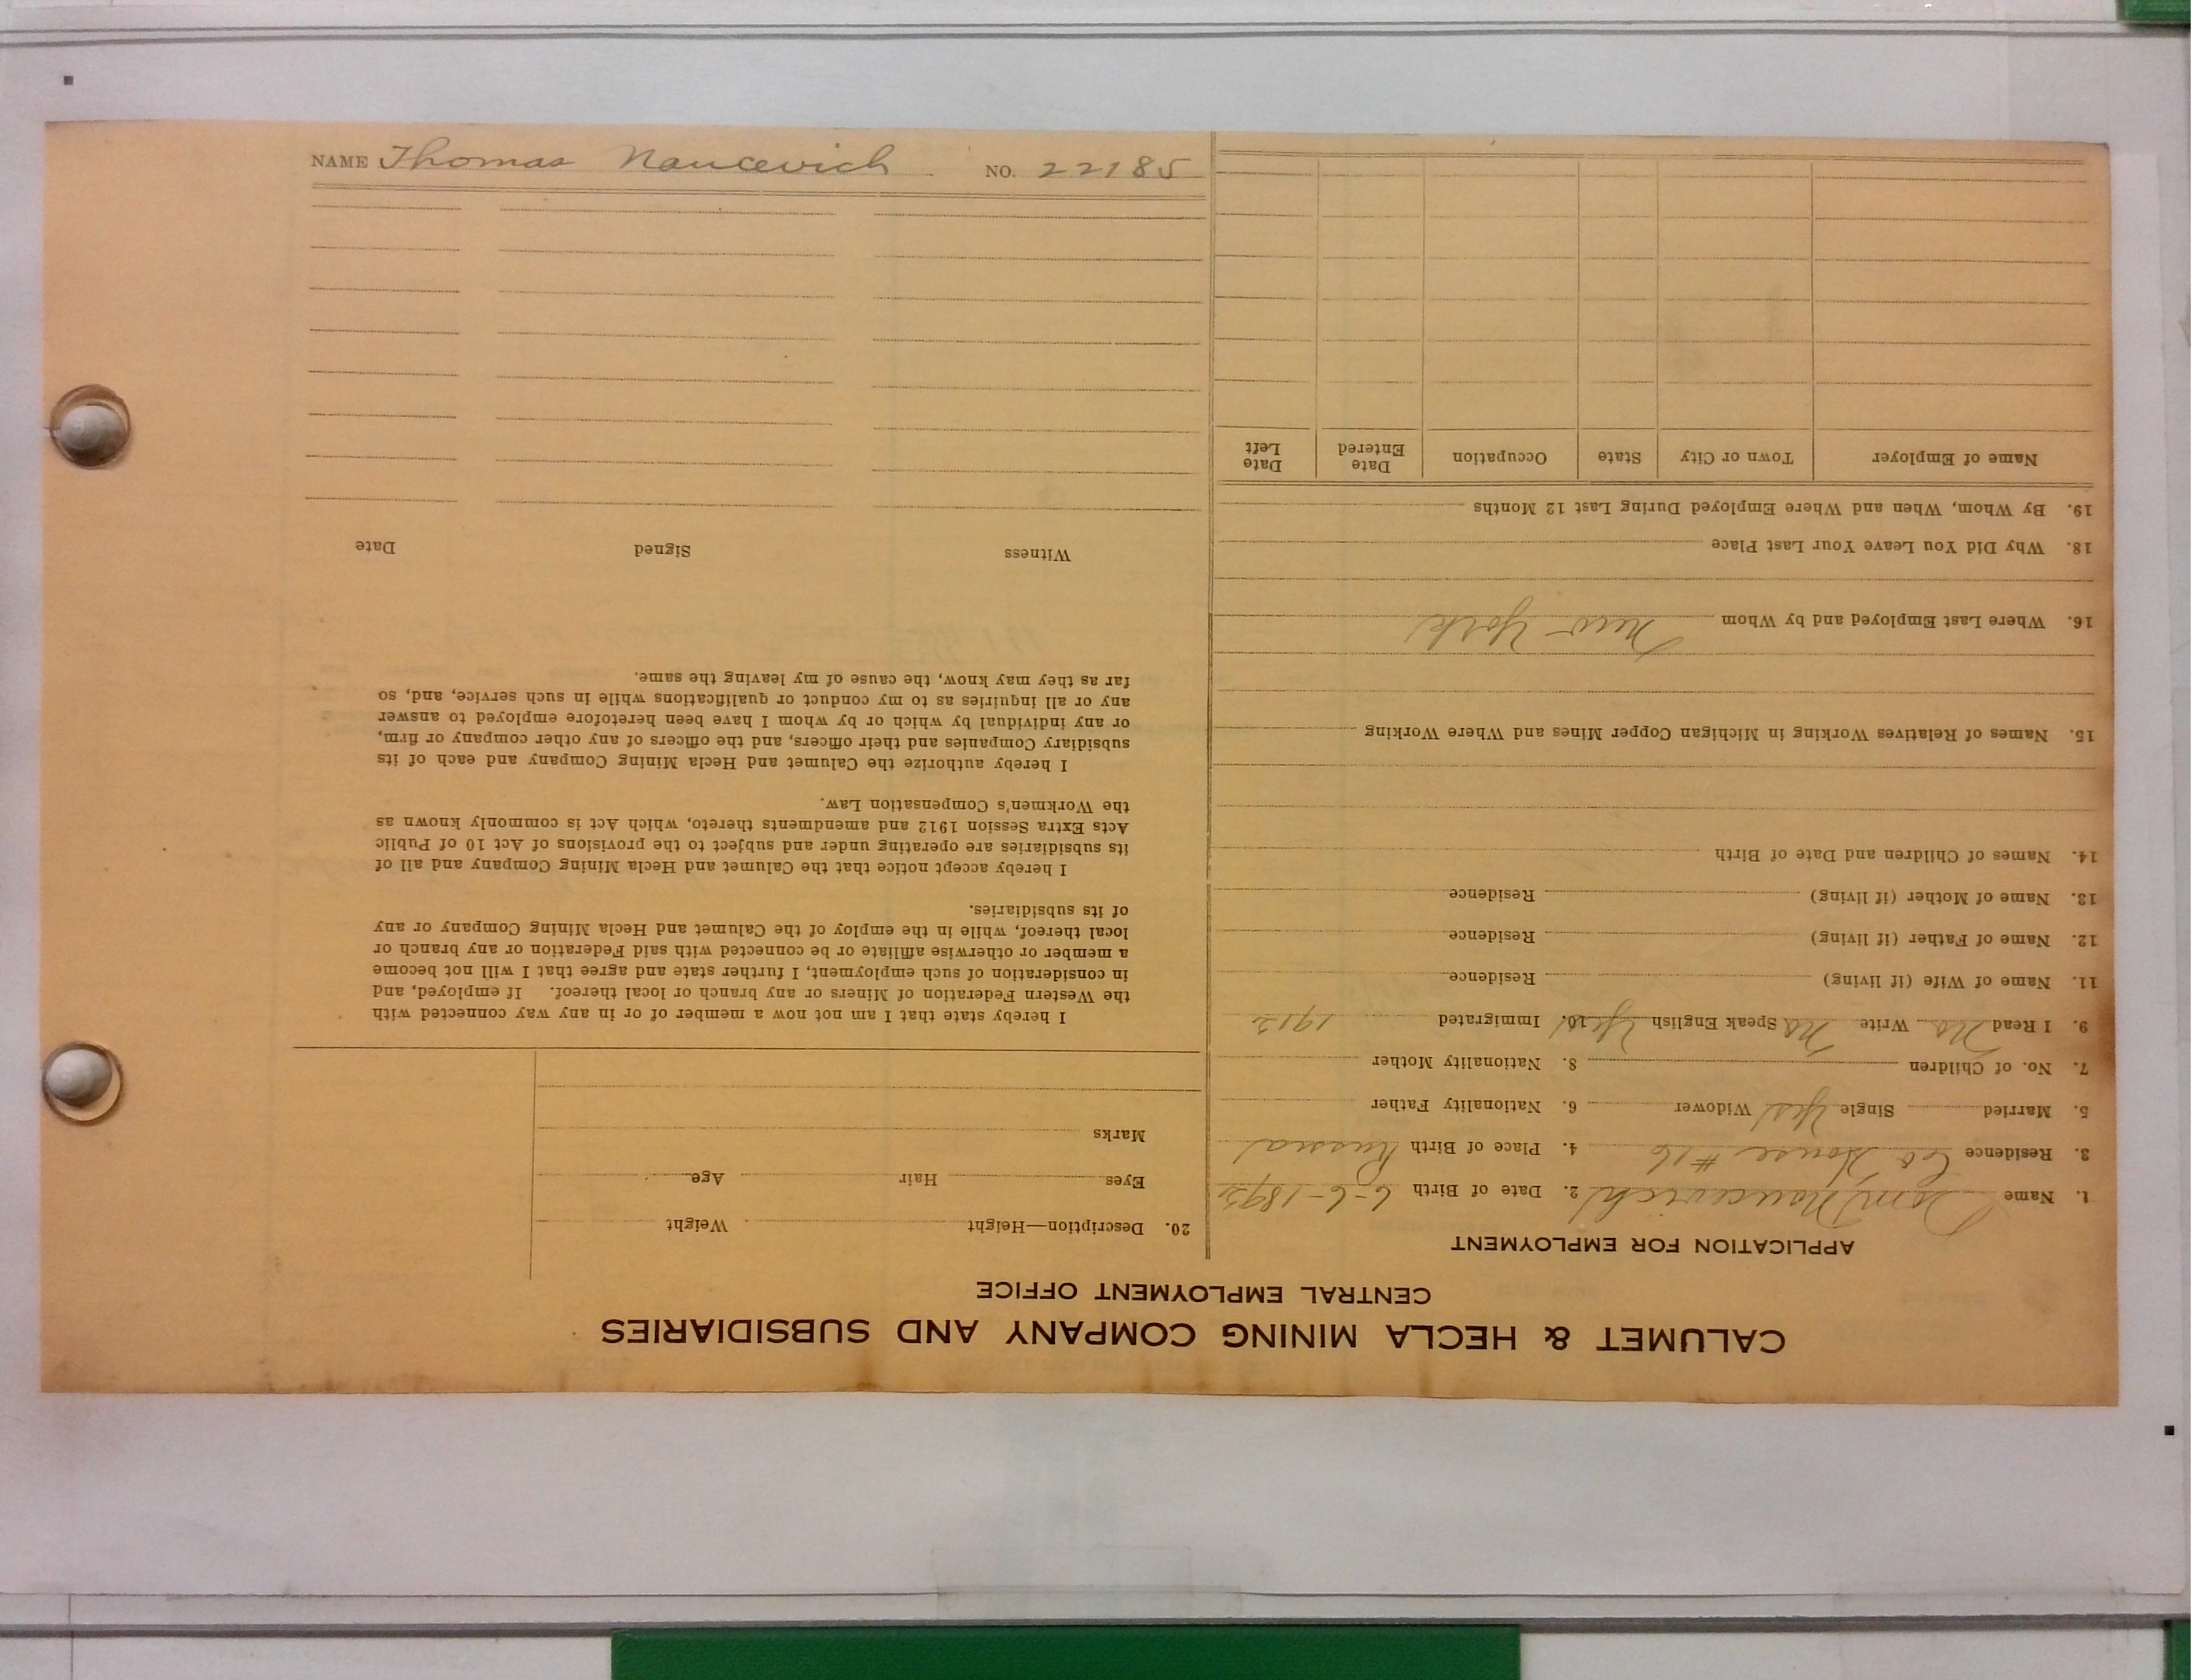 CALUMET & HECLA MINING COMPANY AND SUBSIDIARIES
CENTRAL EMPLOYMENT OFFICE
APPLICATION FOR EMPLOYMENT
1. Name Tom Naucevich 2. Date of Birth 6-6-1893
3. Residence Co House #16 4. Place of Birth Russia
5. Married Single Yes Widower 6. Nationality Father
7. No. of Children 8. Nationality Mother
9. I Read No Write No Speak English Yes 10. Immigrated 1912
11. Name of Wife (if living) Residence
12. Name of Father (if living) Residence
13. Name of Mother (if living) Residence
14. Names of Children and Date of Birth
15. Names of Relatives Working in Michigan Copper Mines and Where Working
16. Where Last Employed and by Whom New York
18. Why Did You Leave Your Last Place
19. By Whom, When and Where Employed During Last 12 Months
Name of Employer Town or City State Occupation Date Entered Date Left
20. Description—Height Weight
Eyes Hair Age
Marks
I hereby state that I am not now a member of or in any way connected with
the Western Federation of Miners or any branch or local thereof. If employed, and
in consideration of such employment, I further state and agree that I will not become
a member or otherwise affiliate or be connected with said Federation or any branch or
local thereof, while in the employ of the Calumet and Hecla Mining Company or any
of its subsidiaries.
I hereby accept notice that the Calumet and Hecla Mining Company and all of
its subsidiaries are operating under and subject to the provisions of Act 10 of Public
Acts Extra Session 1912 and amendments thereto, which Act is commonly known as
the Workmen's Compensation Law.
I hereby authorize the Calumet and Hecla Mining Company and each of its
subsidiary Companies and their officers, and the officers of any other company or firm,
or any individual by which or by whom I have been heretofore employed to answer
any or all inquiries as to my conduct or qualifications while in such service, and, so
far as they may know, the cause of my leaving the same.
Witness Signed Date
NAME Thomas Naucevich NO. 22185